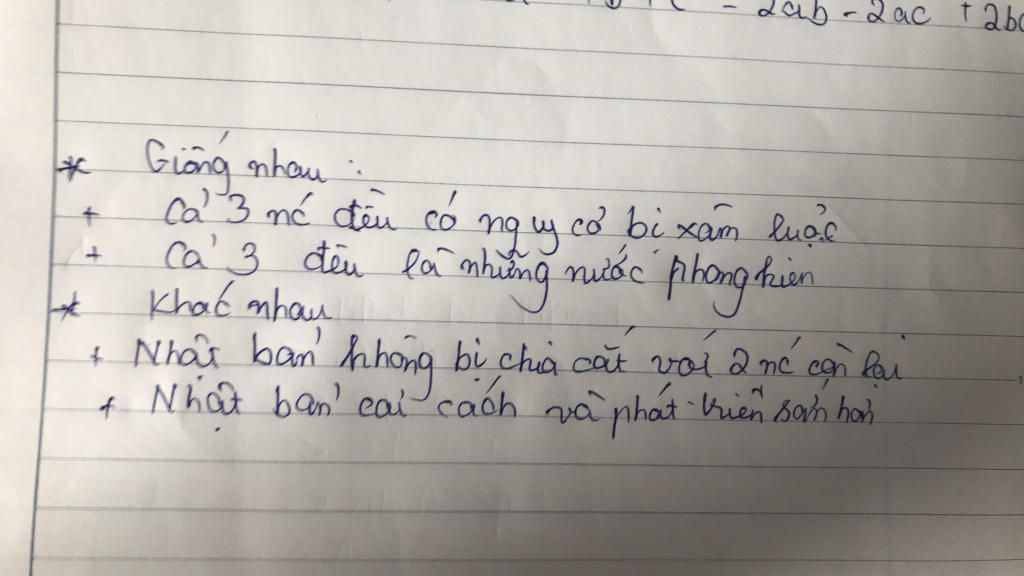 - 2ab - 2ac + 2bc
* Giống nhau :
+ Cả 3 nć đều có nguy cơ bị xâm lược
+ Cả 3 đều là những nước phong kiến
* Khác nhau
+ Nhật bản không bị chia cắt với 2 nć còn lại
+ Nhật bản cải cách và phát triển sớm hơn